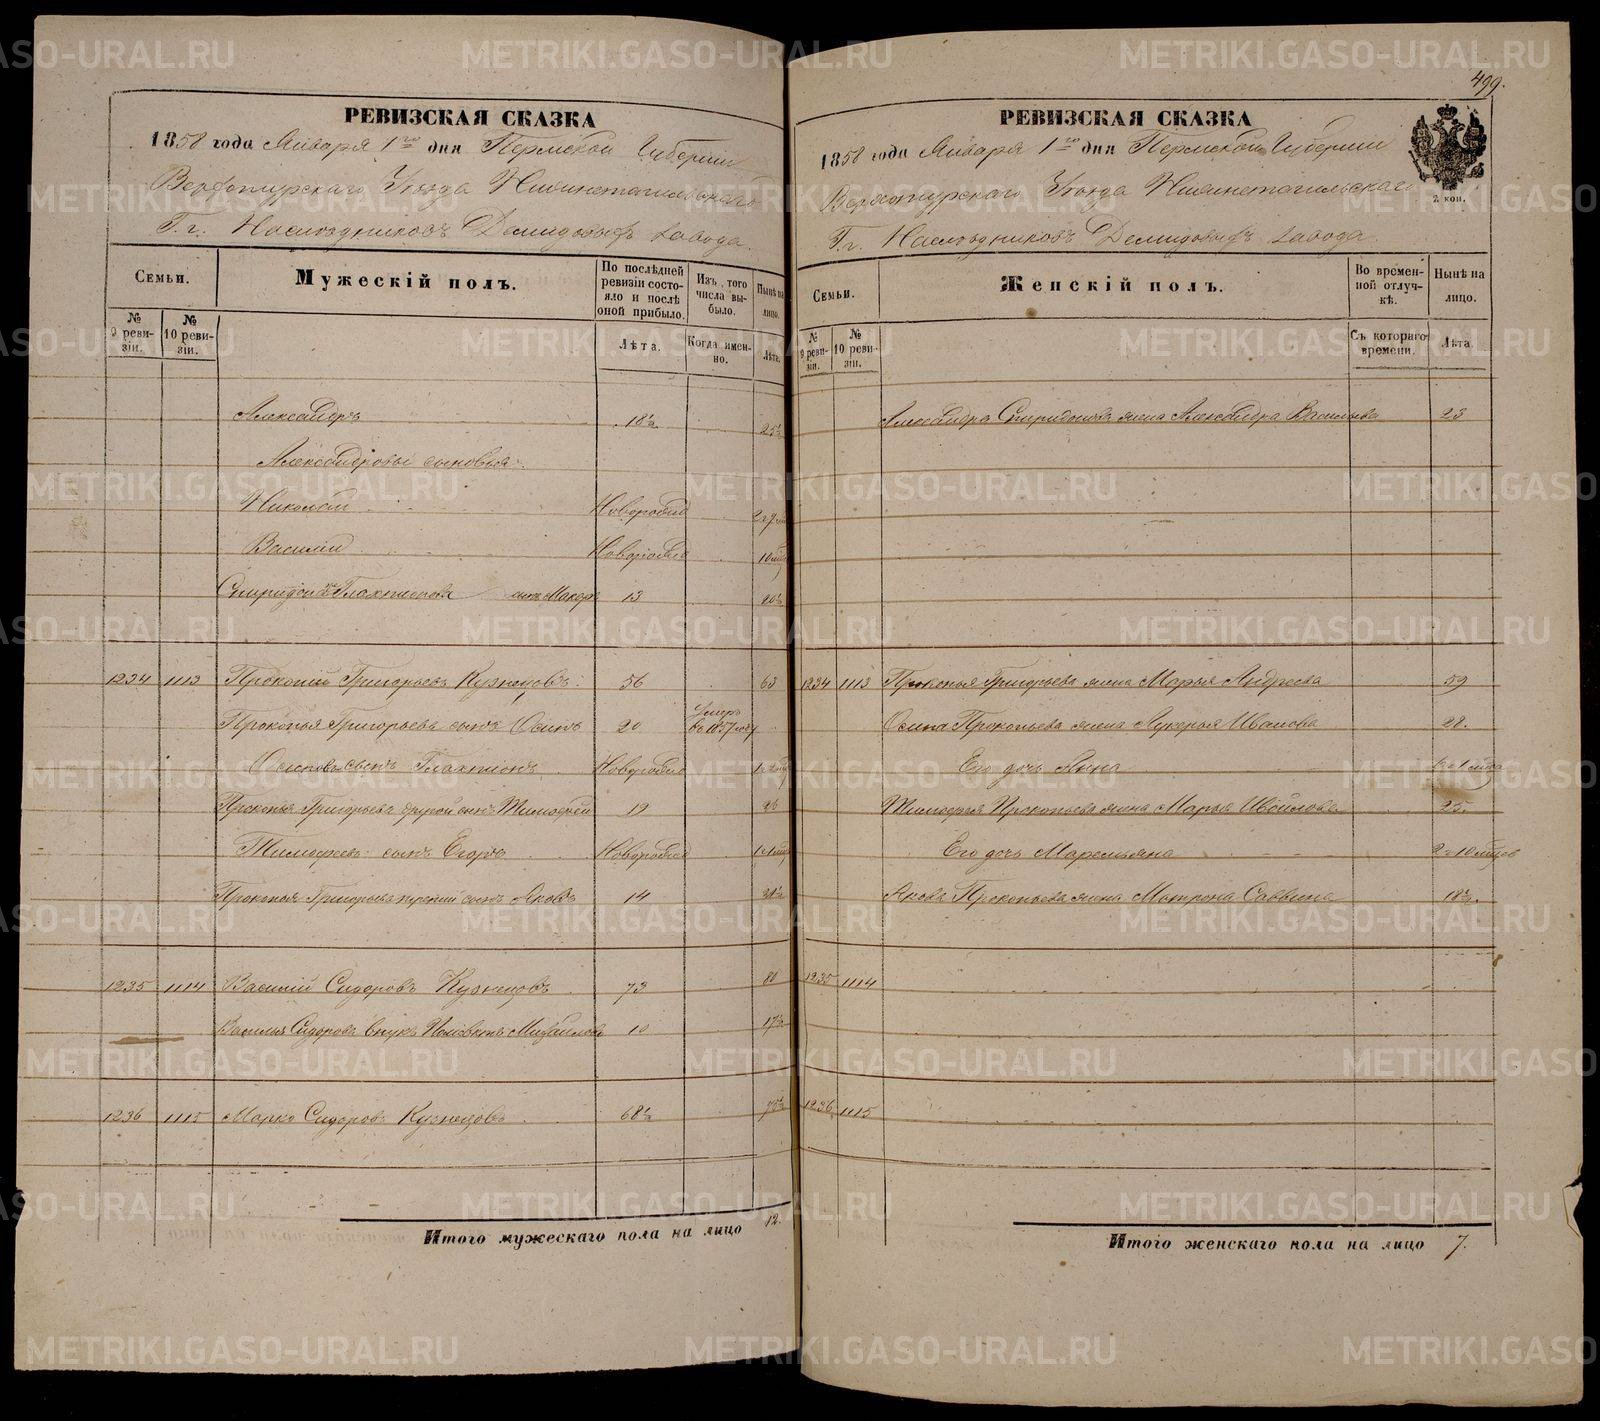 РЕВИЗСКАЯ СКАЗКА
1858 года Января 1го дня Пермской Губерніи
Верхотурскаго Уѣзда Нижнетагильскаго
Г.г. Наслѣдниковъ Демидовыхъ завода.
Семьи.
Мужескій полъ.
По послѣдней ревизіи состояло и послѣ оной прибыло.
Изъ того числа выбыло.
Нынѣ на лицо.
№ 9 ревизіи.
№ 10 ревизіи.
Лѣта.
Когда именно.
Лѣта.
Александръ 18½ 25½
Александровы сыновья
Николай Новорожд
Василій Новорожд 10 мѣс
сынъ Макаръ 13 20½
1234 1113 Прокопій Григорьевъ Кузнецовъ 56 63
Прокопья Григорьева сынъ Осипъ 20 Умеръ въ 1857 году
Осиповъ сынъ Галактіонъ Новорожд
Прокопья Григорьева другой сынъ Тимофей 19 26
Тимофеевъ сынъ Егоръ Новорожд
Прокопья Григорьева третій сынъ Яковъ 14 21½
1235 1114 Василій Сидоровъ Кузнецовъ 73 80
Василья Сидорова внукъ Михайловъ 10 17½
1236 1115 Марко Сидоровъ Кузнецовъ 68½ 75½
Итого мужескаго пола на лицо 12.
499.
РЕВИЗСКАЯ СКАЗКА
1858 года Января 1го дня Пермской Губерніи
Верхотурскаго Уѣзда Нижнетагильскаго
Г.г. Наслѣдниковъ Демидовыхъ завода
2 коп.
Семьи.
Женскій полъ.
Во временной отлучкѣ.
Нынѣ на лицо.
№ 9 ревизіи.
№ 10 ревизіи.
Съ котораго времени.
Лѣта.
Александра Спиридонова жена Александра Васильева 23
1234 1113 Прокопья Григорьева жена Марья Андреева 59
Осипа Прокопьева жена Лукерья Иванова 28.
Его дочь Анна
Тимофея Прокопьева жена Марья 25.
Его дочь Маремьяна 2 г 10 мѣсцов
Якова Прокопьева жена Матрона Саввина 18½.
1235 1114
1236 1115
Итого женскаго пола на лицо 7.
METRIKI.GASO-URAL.RU